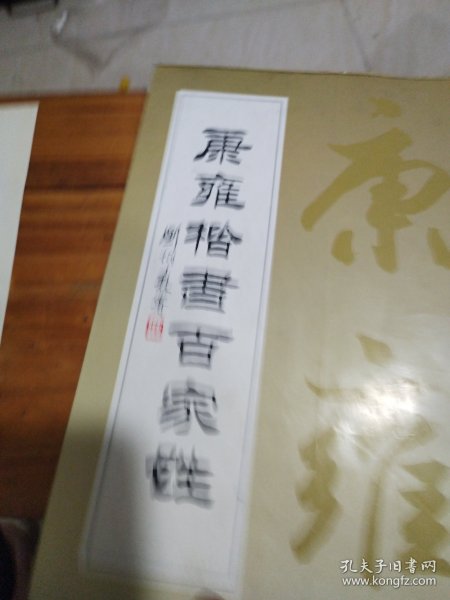 康雍楷書百家姓
康雍
孔夫子旧书网
www.kongfz.com